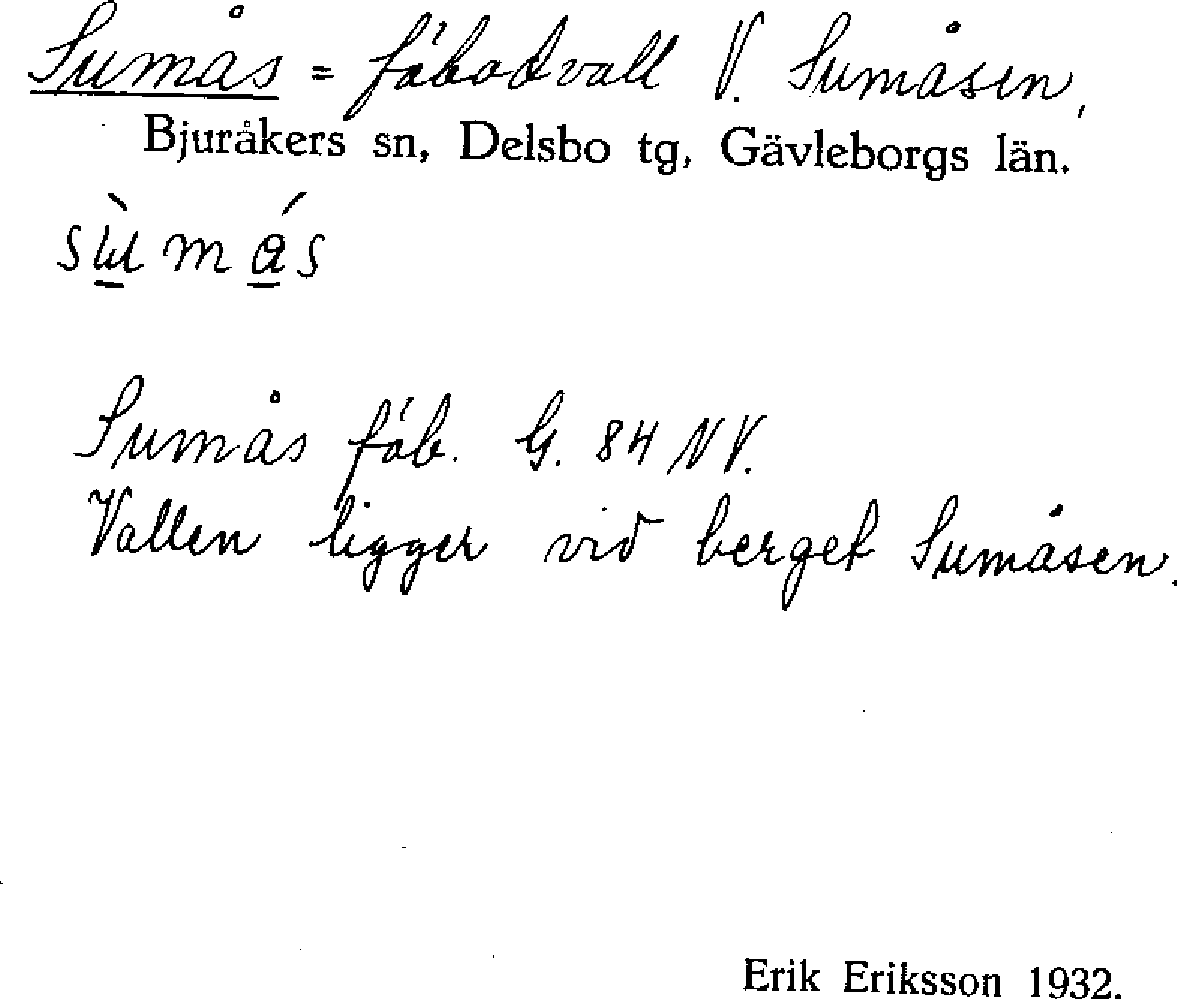 Sumås = fäbodvall V. Sumåsen,
Bjuråkers sn, Delsbo tg, Gävleborgs län.
Sumås fäb. G. 84 NV.
Vallen ligger vid berget Sumåsen.
Erik Eriksson 1932.